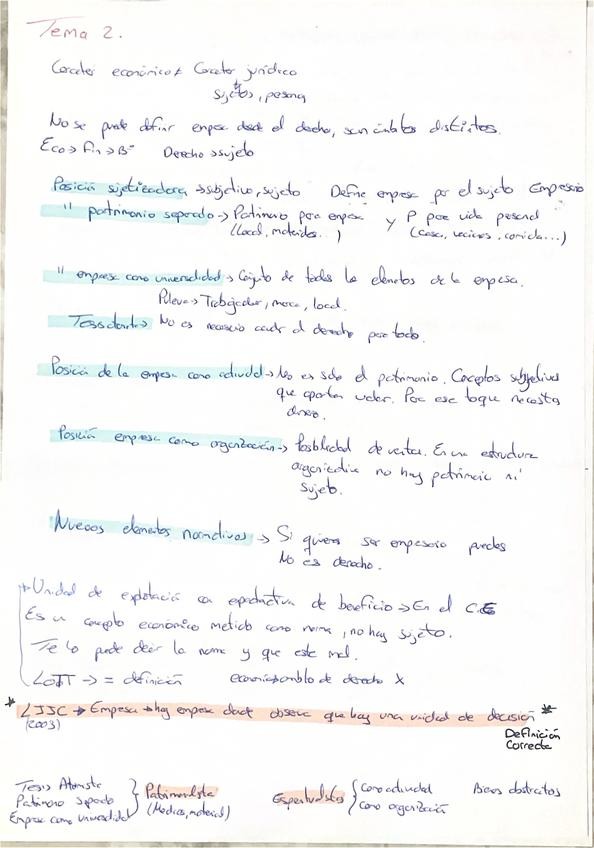 Tema 2.
Caracter económico ≠ Caracter jurídico
sujetos, persona
No se puede definir empresa desde el derecho, son ámbitos distintos.
Eco → Fin → Bº Derecho → sujeto
Posición sujetizadora → subjetivo, sujeto Define empresa por el sujeto Empresario
" patrimonio separado → Patrimonio para empresa y P para vida personal
(local, materiales...) (casa, vecinos, comida...)
" empresa como universalidad → Conjunto de todos los elementos de la empresa.
Trabajador, marca, local.
→ No es necesario el derecho para todo.
Posición de la empresa como actividad → No es solo el patrimonio. Conceptos subjetivos
que aportan valor. Para eso toque necesita
dinero.
Posición empresa como organización → Posibilidad de ventas. En una estructura
organizativa no hay patrimonio ni
sujeto.
Nuevos elementos normativos → Si quieres ser empresario puedes
No es derecho.
Unidad de explotación con de beneficio → En el C.E
Es un concepto económico metido como norma, no hay sujeto.
Te lo puede decir la norma y que este mal.
→ = definición de derecho X
* → Empresa → hay empresa observa que hay una unidad de decisión *
(2003)
Definición
Correcta
Tesis Atomista
Patrimonio separado
Empresa como universalidad
Patrimonialista
(Medios, material)
Espiritualistas
Como actividad
Como organización
Bienes abstractos